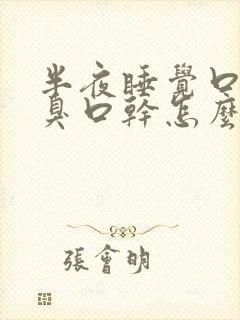 半夜睡覺口
臭口幹怎麼
張會明